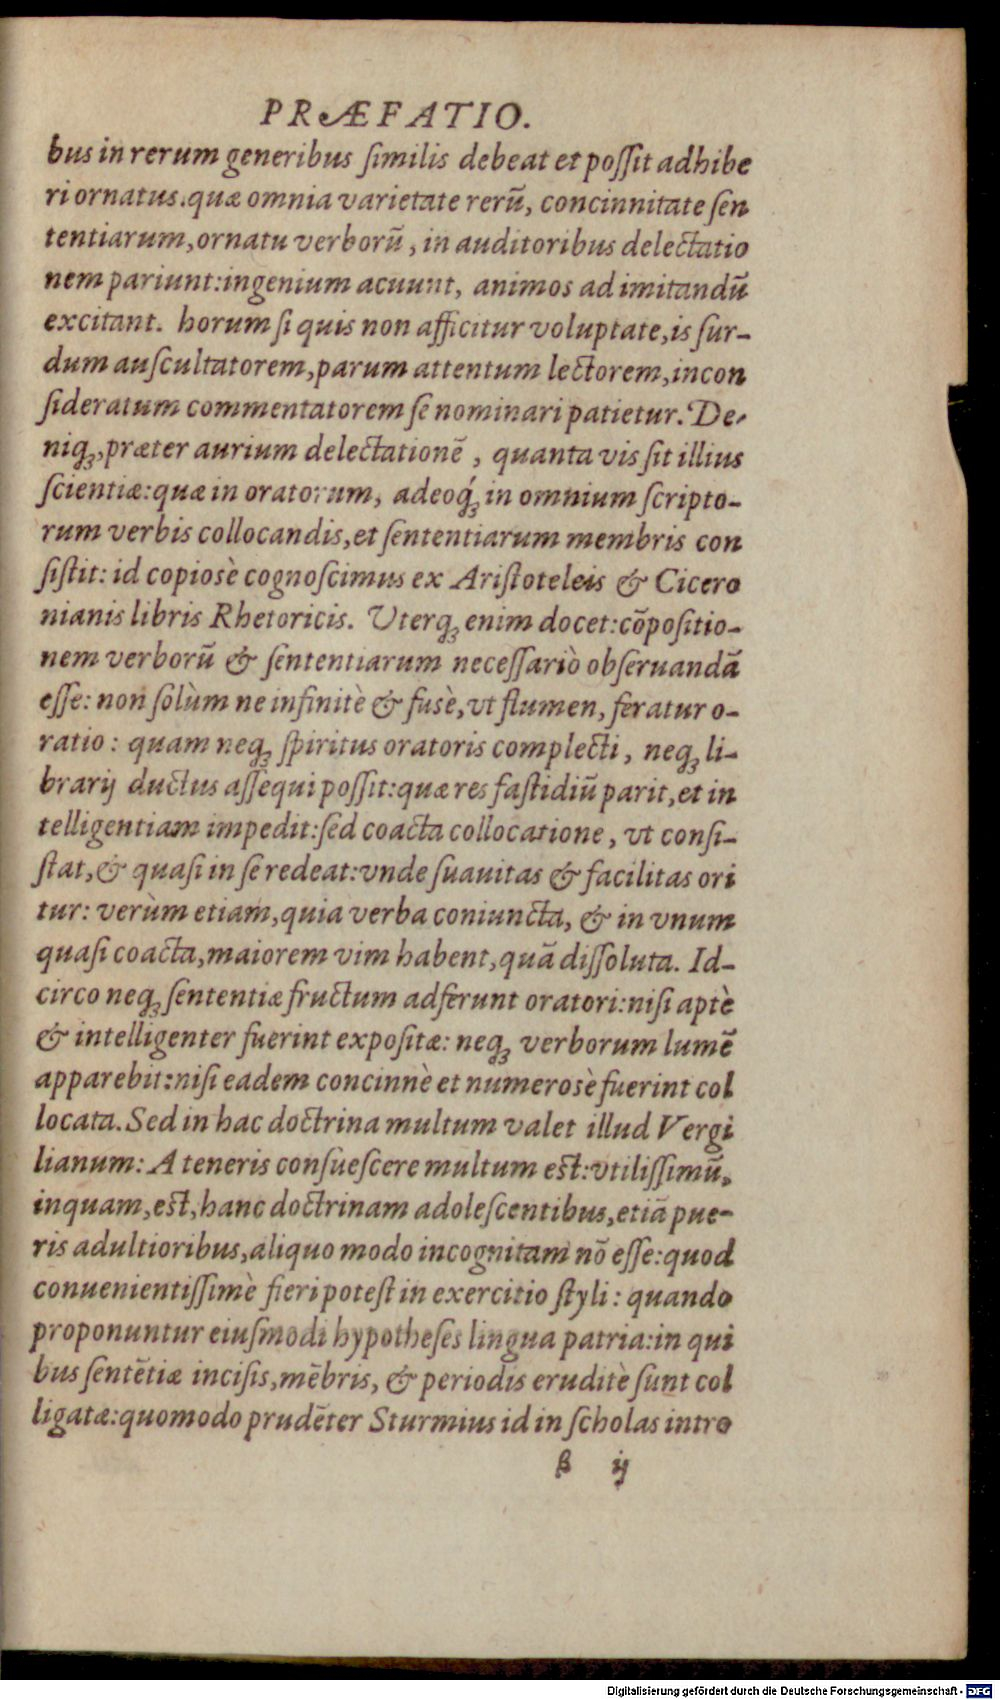 PRÆFATIO.
bus in rerum generibus ſimilis debeat et poſſit adhibe
ri ornatus. quæ omnia varietate rerũ, concinnitate ſen
tentiarum, ornatu verborũ, in auditoribus delectatio
nem pariunt: ingenium acuunt, animos ad imitandũ
excitant. horum ſi quis non afficitur voluptate, is ſur-
dum auſcultatorem, parum attentum lectorem, incon
ſideratum commentatorem ſe nominari patietur. De-
niqꝫ, præter aurium delectationẽ, quanta vis ſit illius
ſcientiæ: quæ in oratorum, adeoq́ꝫ in omnium ſcripto-
rum verbis collocandis, et ſententiarum membris con
ſiſtit: id copiosè cognoſcimus ex Ariſtoteleis & Cicero
nianis libris Rhetoricis. Vterqꝫ enim docet: cõpoſitio-
nem verborũ & ſententiarum neceſſariò obſeruandã
eſſe: non ſolùm ne infinitè & fusè, vt flumen, feratur o-
ratio: quam neqꝫ ſpiritus oratoris complecti, neqꝫ li-
brarij ductus aſſequi poſſit: quæ res faſtidiũ parit, et in
telligentiam impedit: ſed coacta collocatione, vt conſi-
ſtat, & quaſi in ſe redeat: vnde ſuauitas & facilitas ori
tur: verùm etiam, quia verba coniuncta, & in vnum
quaſi coacta, maiorem vim habent, quã diſſoluta. Id-
circo neqꝫ ſententiæ fructum adferunt oratori: niſi aptè
& intelligenter fuerint expoſitæ: neqꝫ verborum lumẽ
apparebit: niſi eadem concinnè et numerosè fuerint col
locata. Sed in hac doctrina multum valet illud Vergi
lianum: A teneris conſueſcere multum eſt: vtiliſſimũ,
inquam, eſt, hanc doctrinam adoleſcentibus, etiã pue-
ris adultioribus, aliquo modo incognitam nõ eſſe: quod
conuenientiſſimè fieri poteſt in exercitio ſtyli: quando
proponuntur eiuſmodi hypotheſes lingua patria: in qui
bus ſentẽtiæ inciſis, mẽbris, & periodis eruditè ſunt col
ligatæ: quomodo prudẽter Sturmius id in ſcholas intro
β ij
Digitalisierung gefördert durch die Deutsche Forschungsgemeinschaft - DFG